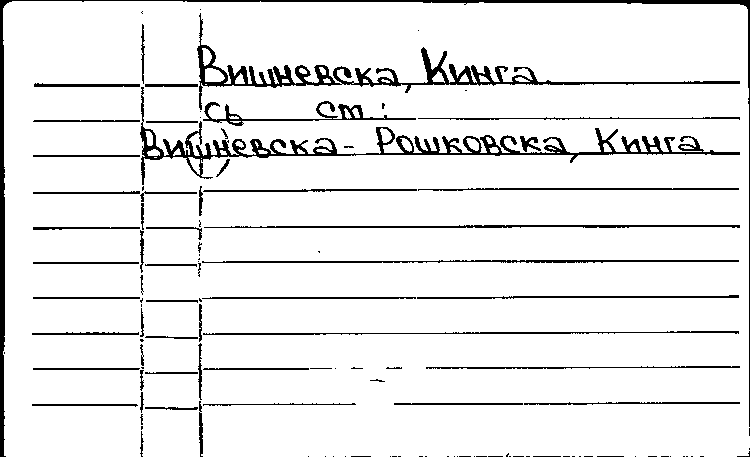 Вишневска, Кинга.
сь ст.:
Вишневска - Рошковска, Кинга.